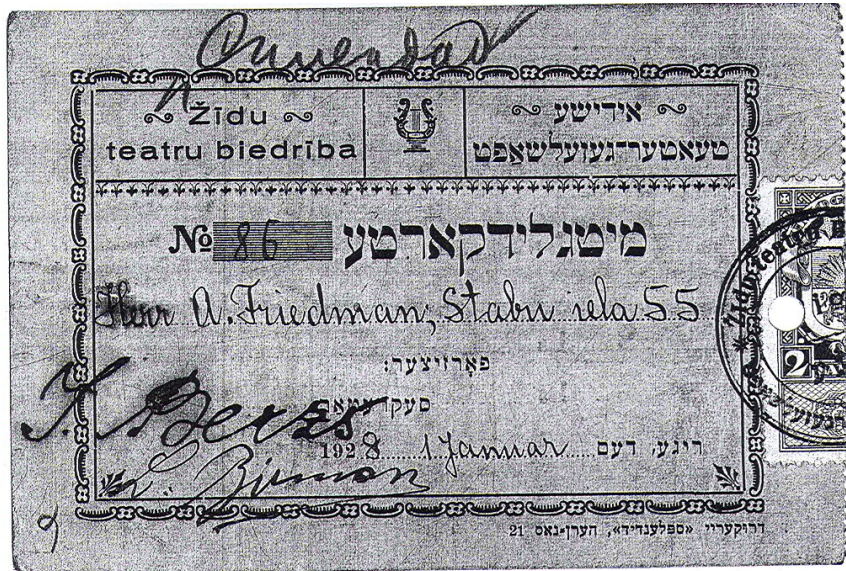 Žīdu
teatru biedrība
אידישע
טעאטער־געזעלשאַפט
№ 86
מיטגלידקארטע
Herr A. Friedman, Stabu iela 55
פאָרזיצער:
סעקרעטאַר
ריגע, דעם 1 Januar 1928
דרוקעריי «ספּלענדיד», הערן־גאס 21
Žīdu teatru
2